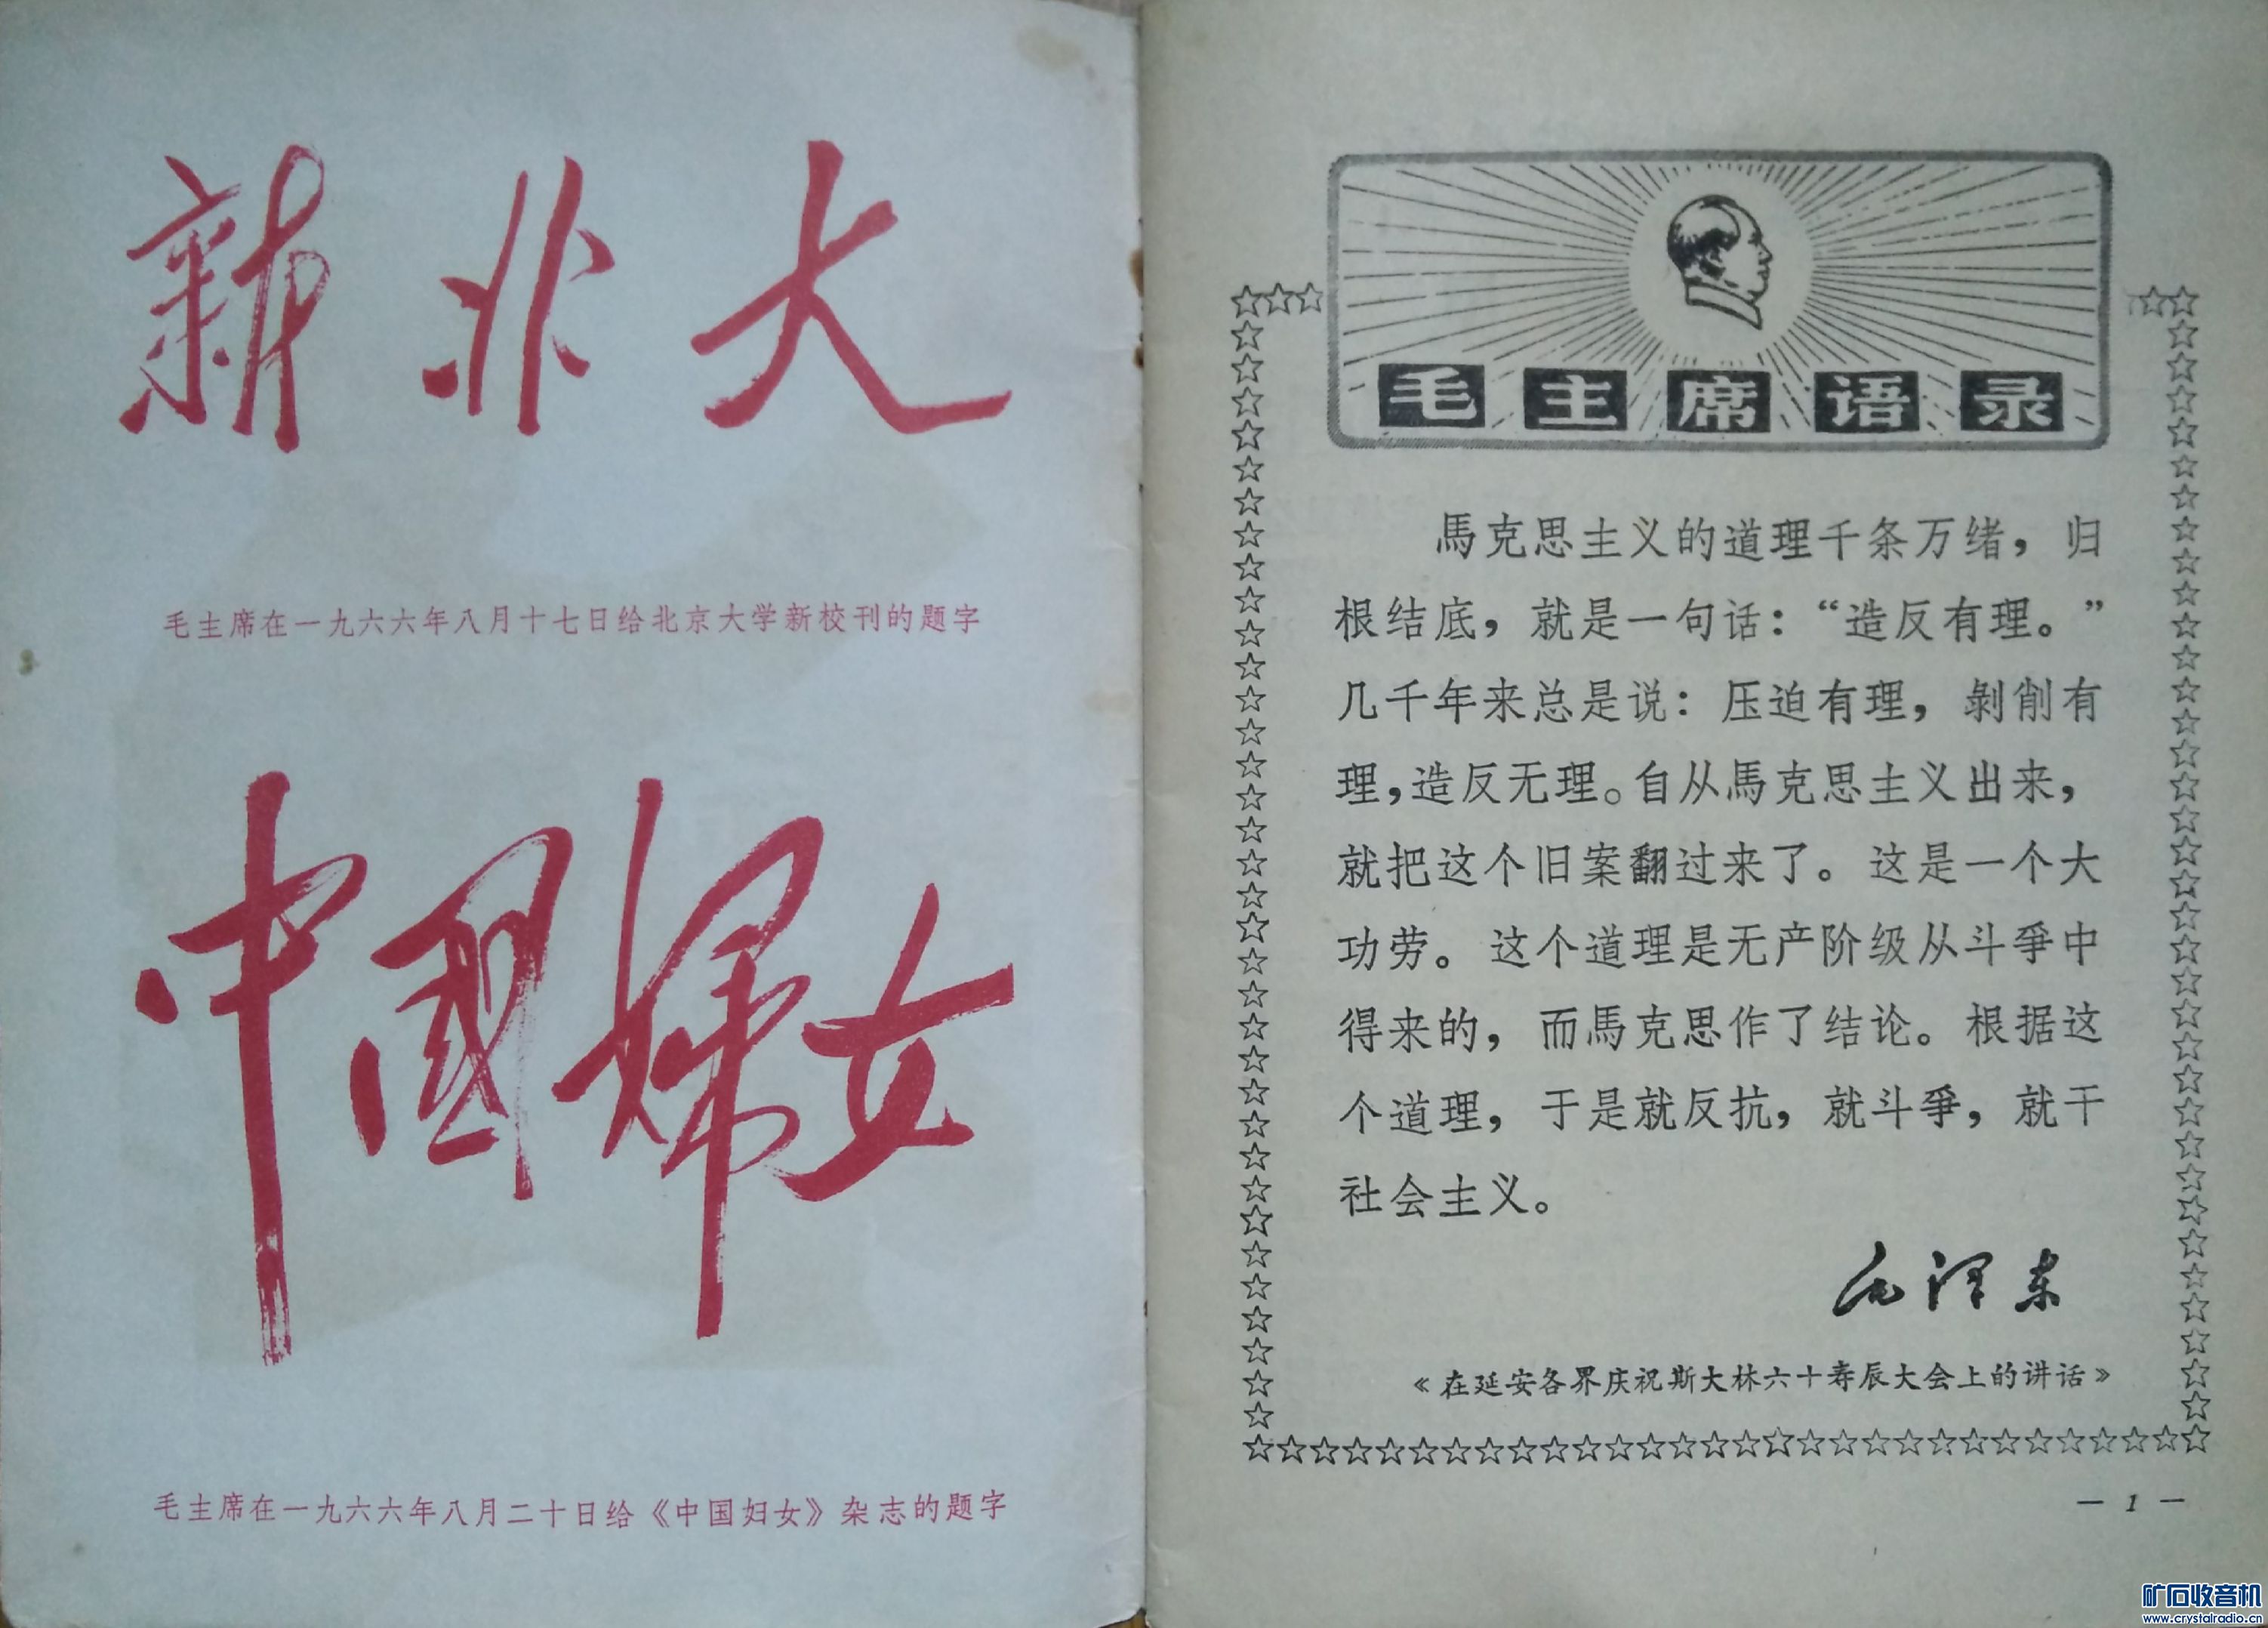 新北大
毛主席在一九六六年八月十七日给北京大学新校刊的题字
中國婦女
毛主席在一九六六年八月二十日给《中国妇女》杂志的题字
毛主席语录
馬克思主义的道理千条万绪，归
根结底，就是一句话：“造反有理。”
几千年来总是说：压迫有理，剝削有
理，造反无理。自从馬克思主义出来，
就把这个旧案翻过来了。这是一个大
功劳。这个道理是无产阶级从斗爭中
得来的，而馬克思作了结论。根据这
个道理，于是就反抗，就斗爭，就干
社会主义。
毛泽东
《在延安各界庆祝斯大林六十寿辰大会上的讲话》
— 1 —
矿石收音机
www.crystalradio.cn